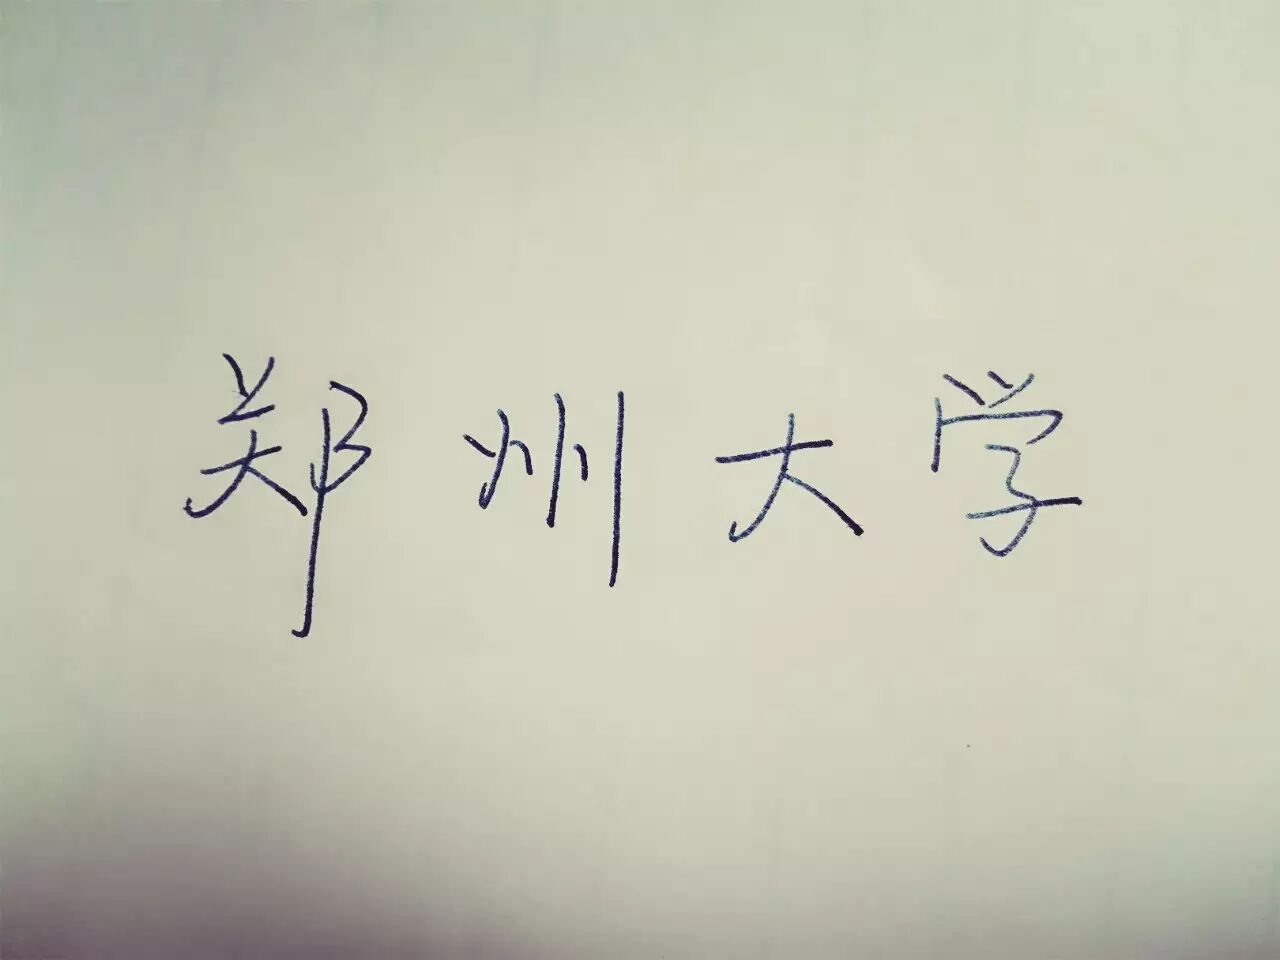 郑州大学